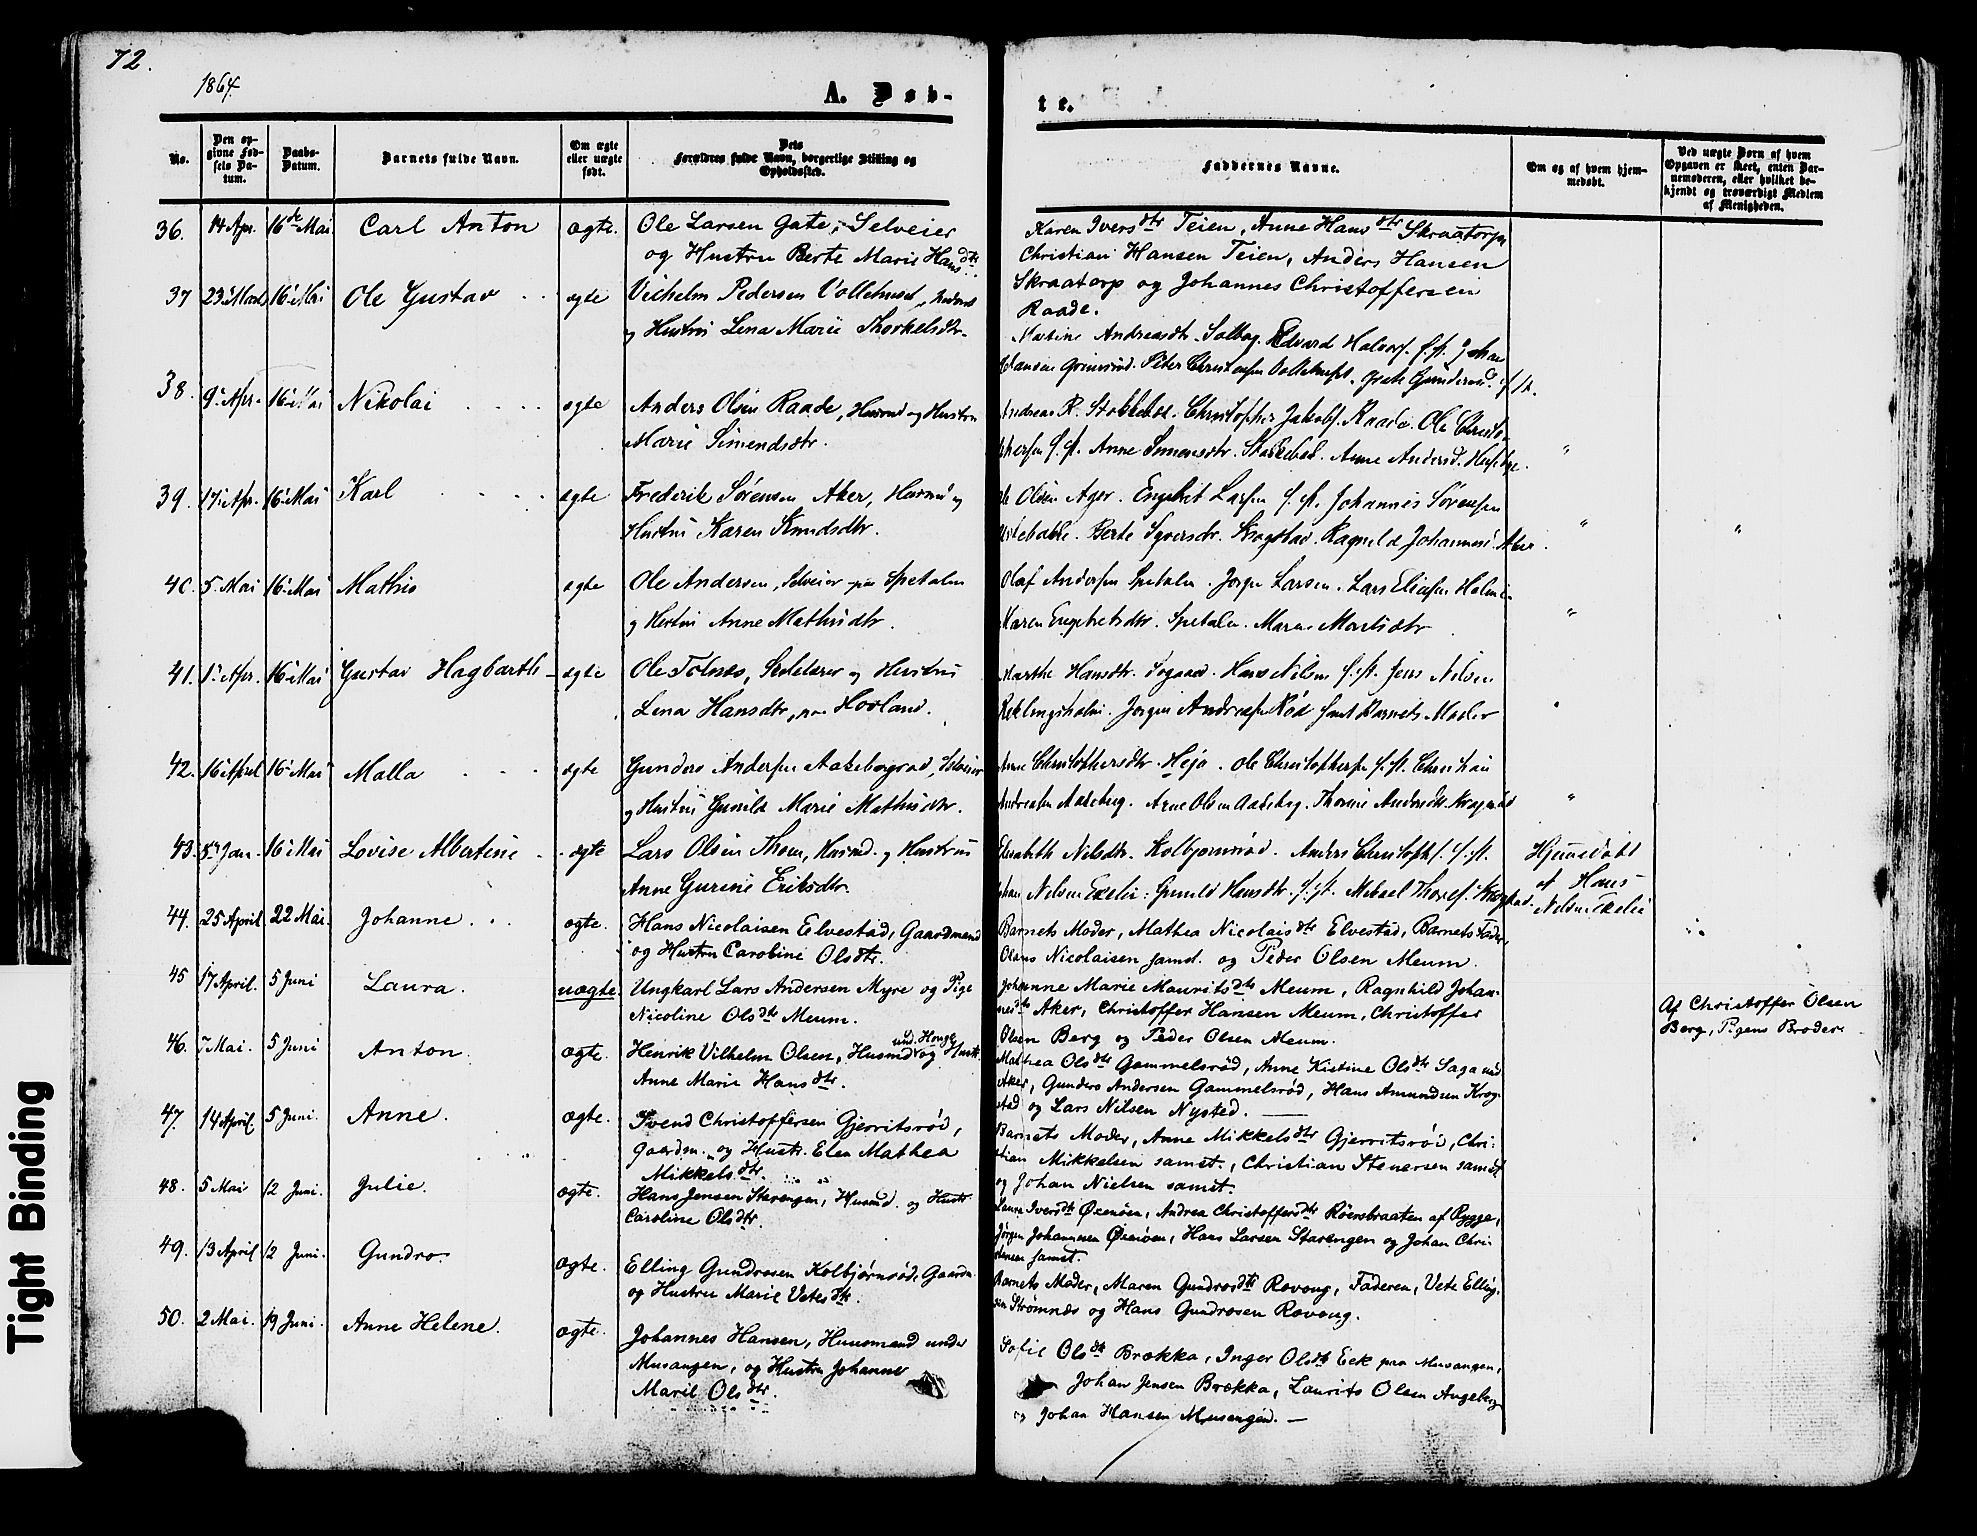 72.
1864.
A. Døb-
te.
No.
Den op-
givne Fød-
sels Da-
tum.
Daabs-
Datum.
Barnets fulde Navn.
Om ægte
eller uægte
født.
Dets
Forældres fulde Navn, borgerlige Stilling og
Opholdssted.
Faddernes Navne.
Om og af hvem hjem-
medøbt.
Ved uægte Børn af hvem
Opgaven er skeet, enten Bar-
nemoderen, eller hvilket be-
kjendt og troværdigt Medlem
af Menigheden.
36. 14 Apr. 16de Mai Carl Anton ægte. Ole Larsen Gate, Selveier
og Hustru Berte Marie Hansdtr.
Karen Iversdtr Teien, Anne Hansdtr Skraatorp
Christian Hansen Teien, Anders Hansen
Skraatorp og Johannes Christoffersen
Raade.
37 16 Mai Ole Gustav ægte Vilhelm Pedersen
og Hustru Lena Marie Thorkelsdtr.
Andreasdtr. Solbag. Edvard Johan
Hansen Peter Christensen
38. 9 Apr. 16 Mai Nikolai ægte Anders Olsen Raade, Husmd og Hustru
Marie Simensdtr.
Andreas R. Christopher Jakobs. Raade. Ole Christo-
phersen Anne Simensdtr. Anne Andersd.
39. 17 Apr. 16 Mai Karl ægte Frederik Sørensen Aker, Husmd og
Hustru Karen Knudsdtr.
Ole Olsen Ager. Engebret Larsen Johannes Sørensen
Berte Syversdtr. Krogstad. Ragnild Johannesd. Aker.
40. 5 Mai 16 Mai Mathis ægte Ole Andersen, Selveier paa Spetalen
og Hustru Anne Mathisdtr.
Olaf Andersen Spetalen. Jørgen Larsen. Lars Eliasen Holme
Karen Engebretsdtr. Spetalen. Maren
41. 1 Apr. 16 Mai Gustav Hagbarth ægte Ole Tofnes, Skolelærer og Hustru
Lena Hansdtr, paa Hovland.
Marthe Hansdtr. Hans Nilsen Jens Nilsen
Jørgen Andreasen Rød samt Barnets Moder
42. 16 April 16 Mai Malla ægte Gunders Andersen Selveier
og Hustru Gunild Marie Mathisdtr.
Anne Christophersdtr. Høje. Ole Christophersen Christian
Andreasen Aakeberg. Arne Olsen Aakeberg.
43. Jan. 16 Mai Lovise Albertine ægte Lars Olsen Husmd. og Hustru
Anne Gurine Eriksdtr.
Elisabeth Nilsdtr. Kolbjørnsrød. Anders
Nilsen Exelie. Gunild Hansdtr.
Hjemmedøbt
af Hans
Nilsen Exelie
44. 25 April 22 Mai. Johanne. ægte. Hans Nicolaisen Elvestad, Gaardmand
og Hustru Caroline Olsdtr.
Barnets Moder, Mathea Nicolaisdtr Elvestad, Barnets Fader,
Olaus Nicolaisen samst. og Peder Olsen Meum.
45 17 April. 5 Juni Laura. uægte. Ungkarl Lars Andersen Myre og Pige
Nicoline Olsdtr Meum.
Johanne Marie Mauritsdtr Meum, Ragnhild Johan-
nesdtr Aker, Christoffer Hansen Meum, Christoffer
Olsen Berg og Peder Olsen Meum.
Af Christoffer Olsen
Berg, Pigens Broder.
46. 7 Mai. 5 Juni Anton. ægte. Henrik Vilhelm Olsen, Husmd und. Hauge og Hustr.
Anne Marie Hansdtr.
Mathea Olsdtr Gammelsrød, Anne Kistine Olsdtr Saga und
Aker, Gunders Andersen Gammelsrød, Hans Amundsen Krog-
stad og Lars Nilsen Nysted.
47. 14 April. 5 Juni. Anne. ægte. Svend Christoffersen Gjerritsrød,
Gaardm. og Hustr. Elen Mathea
Mikkelsdtr.
Barnets Moder, Anne Mikkelsdtr Gjerritsrød, Chri-
stian Mikkelsen samst., Christian Stenersen samst
og Johan Nielsen samst.
48. 5 Mai 12 Juni. Julie. ægte. Hans Jensen Starengen, Husmd. og Hustr
Caroline Olsdtr.
Laura Iversdtr Øxenøen, Andrea Christoffersdtr Röersbraaten af Rygge,
Jørgen Johannesen Øxenøen, Hans Larsen Starengen og Johan Chri-
stensen samst.
49. 13 April 12 Juni. Gundro. ægte. Elling Gundrosen Kolbjørnsrød, Gaardm
og Hustru Marie Vetesdtr.
Barnets Moder, Maren Gundrosdtr Rovoug, Faderen, Vete Elling-
sen Strømnæs og Hans Gundrosen Rovoug.
50. 2 Mai. 19 Juni. Anne Helene. ægte. Johannes Hansen, Huusmand under
Musangen, og Hustru Johanne
Marie Olsdtr.
Sofie Olsdtr Brækka, Inger Olsdtr Eek paa Musangen,
Johan Jensen Brækka, Laurits Olsen Augeberg
og Johan Hansen Musangen.
Tight Binding